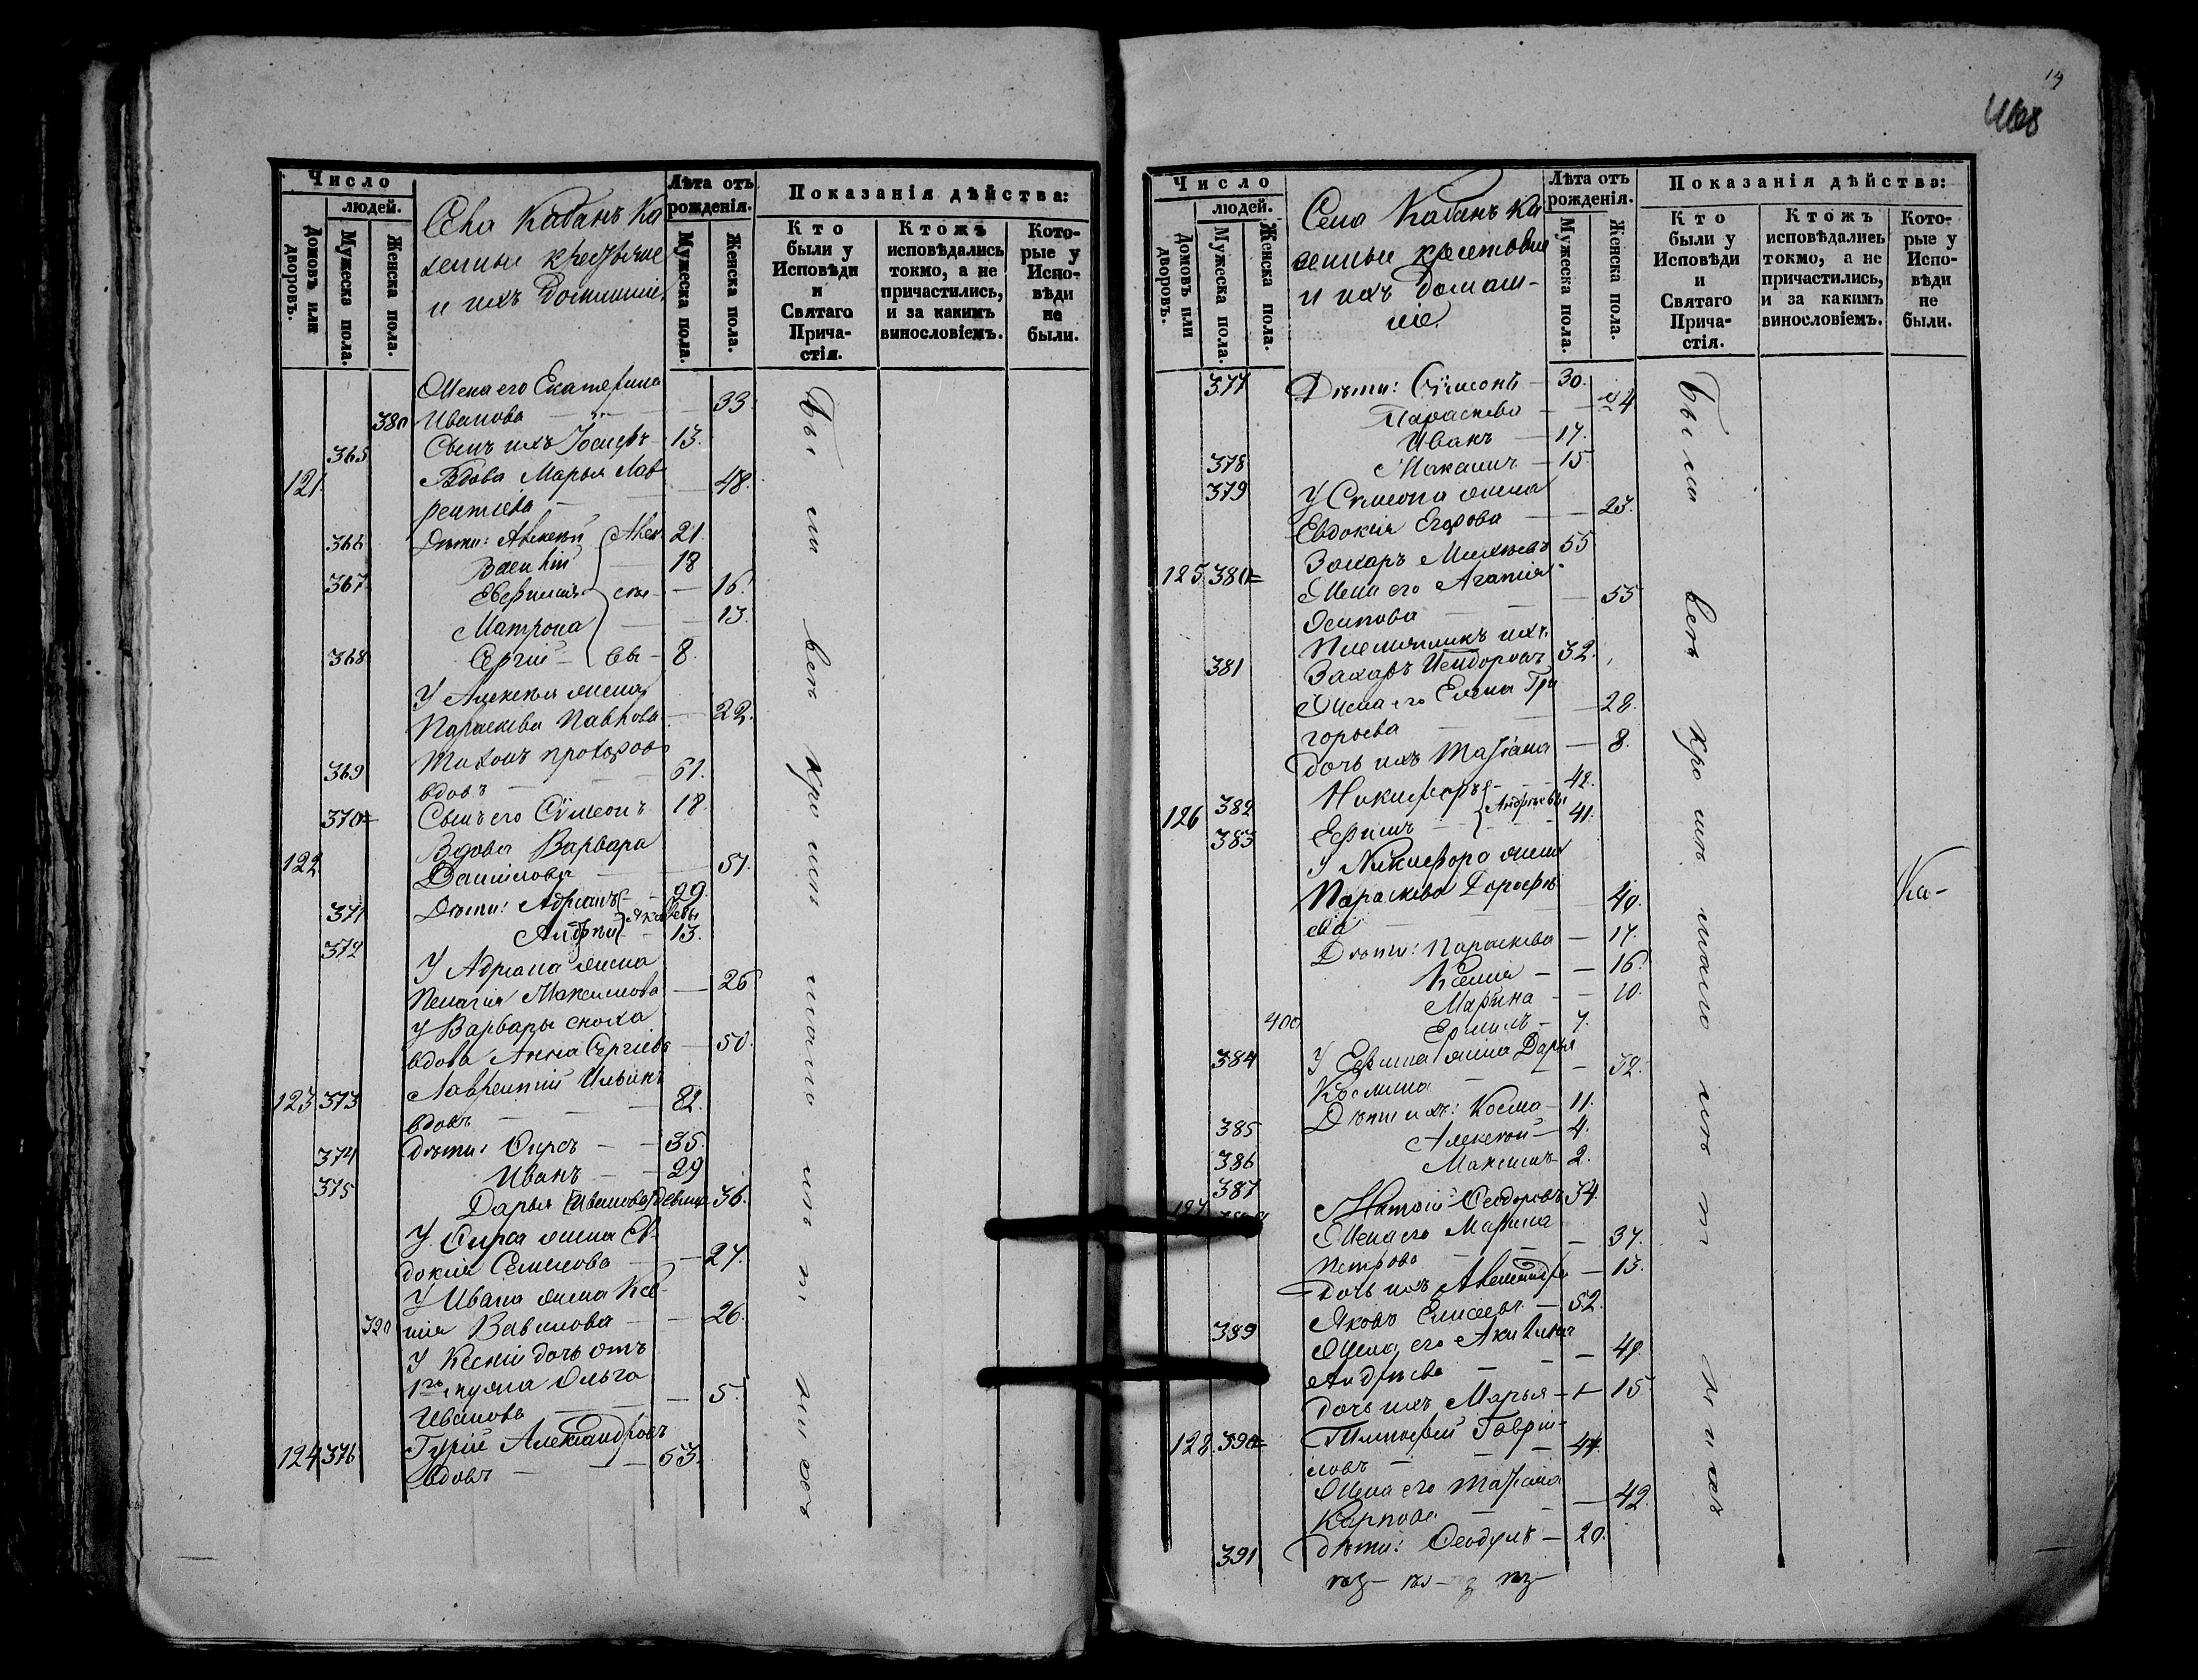 Число
людей.
Домовъ или дворовъ.
Мужеска пола.
Женска пола.
Села Кабанъ Ка
зенныи крестьяне
и ихъ домашніе
Лѣта отъ
рожденія.
Мужеска пола.
Женска пола.
Показанія дѣйства:
Кто
были у
Исповѣди
и
Святаго
Прича-
стія.
Ктожъ
исповѣдались
токмо, а не
причастились,
и за какимъ
винословіемъ.
Кото-
рые у
Испо-
вѣди
не
были.
Жена его Екатерина
380 Иванова 33.
365 Сынъ ихъ Іосифъ 13.
121. Вдова Марья Лав
рентіева 48.
366 Дѣти: Алексѣй Алек 21.
367 Василій 18
Евфимія сѣе 16.
Матрона 13.
368 Сергій вы 8.
У Алексѣя жена
Параскева Павлова 22.
369 Тихонъ Прохоровъ
вдовъ 61.
370 Сынъ его Сѵмеонъ 18.
122 Вдова Варвара
Данилова 51.
371 Дѣти: Адріанъ 29.
372 Андрей 13.
У Адріана жена
Пелагія Максимова 26
У Варвары сноха
вдова Анна Сергіева 50.
123 373 Лаврентій Ильинъ
вдовъ 82.
374 Дѣти: Ѳирсъ 35.
375 Иванъ 29
Дарья (Иванова) девица 36.
У Ѳирса жена Ев-
докія Семенова 27.
У Ивана жена Ксе-
нія Вавилова 26.
У Ксеніи дочь отъ
1го мужа Ольга
Иванова 5.
124 376 Гурій Александровъ
вдовъ 53.
Были всѣ кромѣ мало лѣт нихъ
Число
людей.
Домовъ или дворовъ.
Мужеска пола.
Женска пола.
Села Кабанъ Ка
зенныи крестьяне
и ихъ домаш-
ніе.
Лѣта отъ
рожденія.
Мужеска пола.
Женска пола.
Показанія дѣйства:
Кто
были у
Исповѣди
и
Святаго
Прича-
стія.
Ктожъ
исповѣдались
токмо, а не
причастились,
и за какимъ
винословіемъ.
Кото-
рые у
Испо-
вѣди
не
были.
377 Дѣти: Сѵмеонъ 30.
Параскева
Иванъ 17.
378 15.
379 У Сѵмеона жена
Евдокія Егорова 23.
125 380 Захаръ 55
Жена его Агапія
Осипова 55
Племянникъ ихъ
381 Захаръ Исидоровъ 32.
Жена его Елена Гри
горьева 28.
Дочь ихъ Татіана 8.
126 382 Никифоръ 42.
383 Ефимъ Андреевы 41.
У Никифора жена
Параскева Дорофѣ
ева 40.
Дѣти: Параскева 17.
Ксенія 16.
Марина 10.
400 Ермилъ 7.
384 У Ефима жена Дарья
Козмина 32.
385 Дѣти ихъ: Косма 11.
386 Алексѣй 4.
387 Максимъ 2.
127 Ѳеодоровъ 34.
Жена его Марина
Петрова 37.
Дочь ихъ Александра 13.
389 Яковъ Елисеевъ 52.
Жена его Акилина
Андреева
Дочь ихъ Марья 15
128 390 Тимоѳей Гаврі-
ловъ 44.
Жена его Татіана
Карпова 42.
391 Дѣти: Ѳеодулъ 20.
Были всѣ кромѣ мало лѣт нихъ